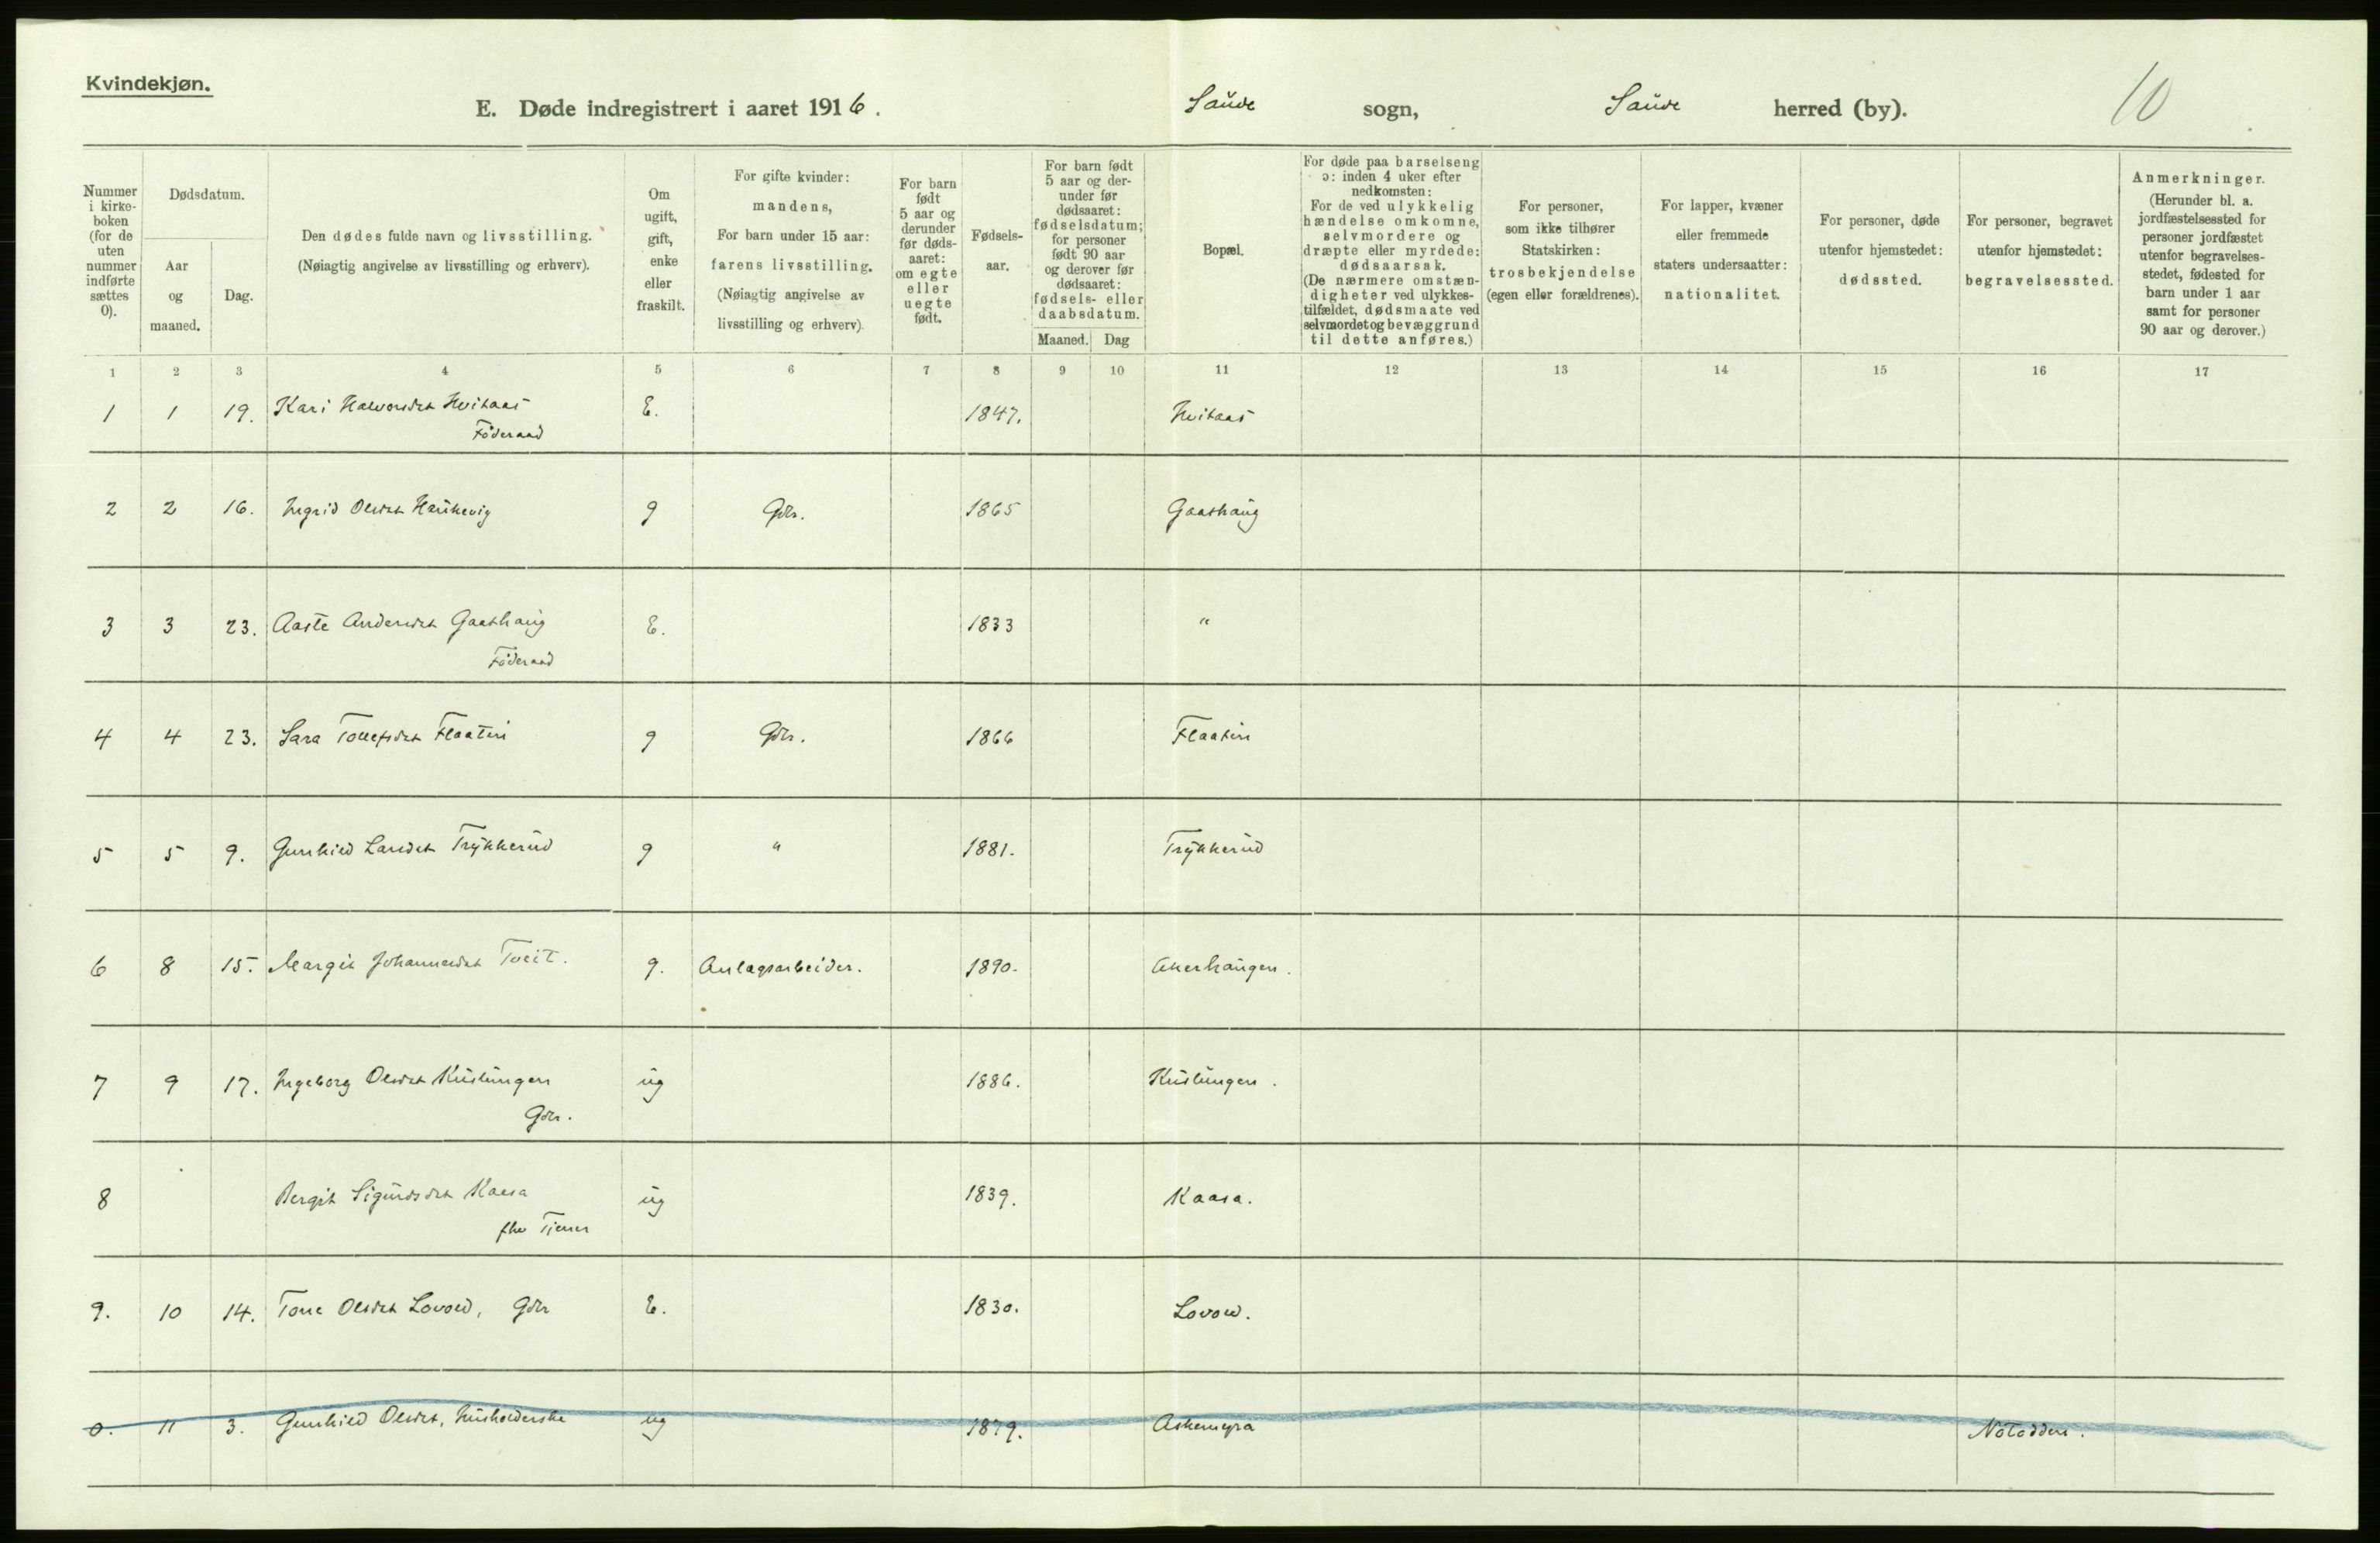 Kvindekjøn.
E. Døde indregistrert i aaret 1916. Saude sogn, Saude herred (by). 10
Nummer i kirkeboken (for de uten nummer indførte sættes 0).
Dødsdatum.
Aar og maaned.
Dag.
Den dødes fulde navn og livsstilling.
(Nøiagtig angivelse av livsstilling og erhverv).
Om ugift, gift, enke eller fraskilt.
For gifte kvinder: mandens,
For barn under 15 aar: farens livsstilling.
(Nøiagtig angivelse av livsstilling og erhverv).
For barn født 5 aar og derunder før dødsaaret: om egte eller uegte født.
Fødselsaar.
For barn født 5 aar og derunder før dødsaaret: fødselsdatum; for personer født 90 aar og derover før dødsaaret: fødsels- eller daabsdatum.
Maaned. Dag
Bopæl.
For døde paa barselseng ɔ: inden 4 uker efter nedkomsten:
For de ved ulykkelig hændelse omkomne, selvmordere og dræpte eller myrdede: dødsaarsak.
(De nærmere omstændigheter ved ulykkestilfældet, dødsmaate ved selvmordet og bevæggrund til dette anføres.)
For personer, som ikke tilhører Statskirken: trosbekjendelse (egen eller forældrenes).
For lapper, kvæner eller fremmede staters undersaatter: nationalitet.
For personer, døde utenfor hjemstedet: dødssted.
For personer, begravet utenfor hjemstedet: begravelsessted.
Anmerkninger.
(Herunder bl. a. jordfæstelsessted for personer jordfæstet utenfor begravelsesstedet, fødested for barn under 1 aar samt for personer 90 aar og derover.)
1 2 3 4 5 6 7 8 9 10 11 12 13 14 15 16 17
1 1 19. Kari Halvorsdat Hvitaas E. 1847. Hvitaas
Föderaad
2 2 16. Ingrid Olsdat Haukevig g Gdbr. 1865 Gaashaug
3 3 23. Aaste Andersdat Gaashaug E. 1833 "
Föderaad
4 4 23. Sara Tollefsdat Flaatin g Gdbr. 1866 Flaatin
5 5 9. Gunhild Larsdat Trykkerud g " 1881. Trykkerud
6 8 15. Margit Johannesdat Tveit. g. Anlægsarbeider. 1890. Akerhaugen.
7 9 17. Ingeborg Olsdat Kuslungen ug 1886. Kuslungen.
Gdbr.
8 Bergit Sigurdsdat Kaasa ug 1839. Kaasa.
fhv Tjener
9. 10 14. Tone Olsdat Lovold, Gdbr E. 1830. Lovold.
0. 11 3. Gunhild Olsdat, Husholderske ug 1879. Askemyra Notodden.